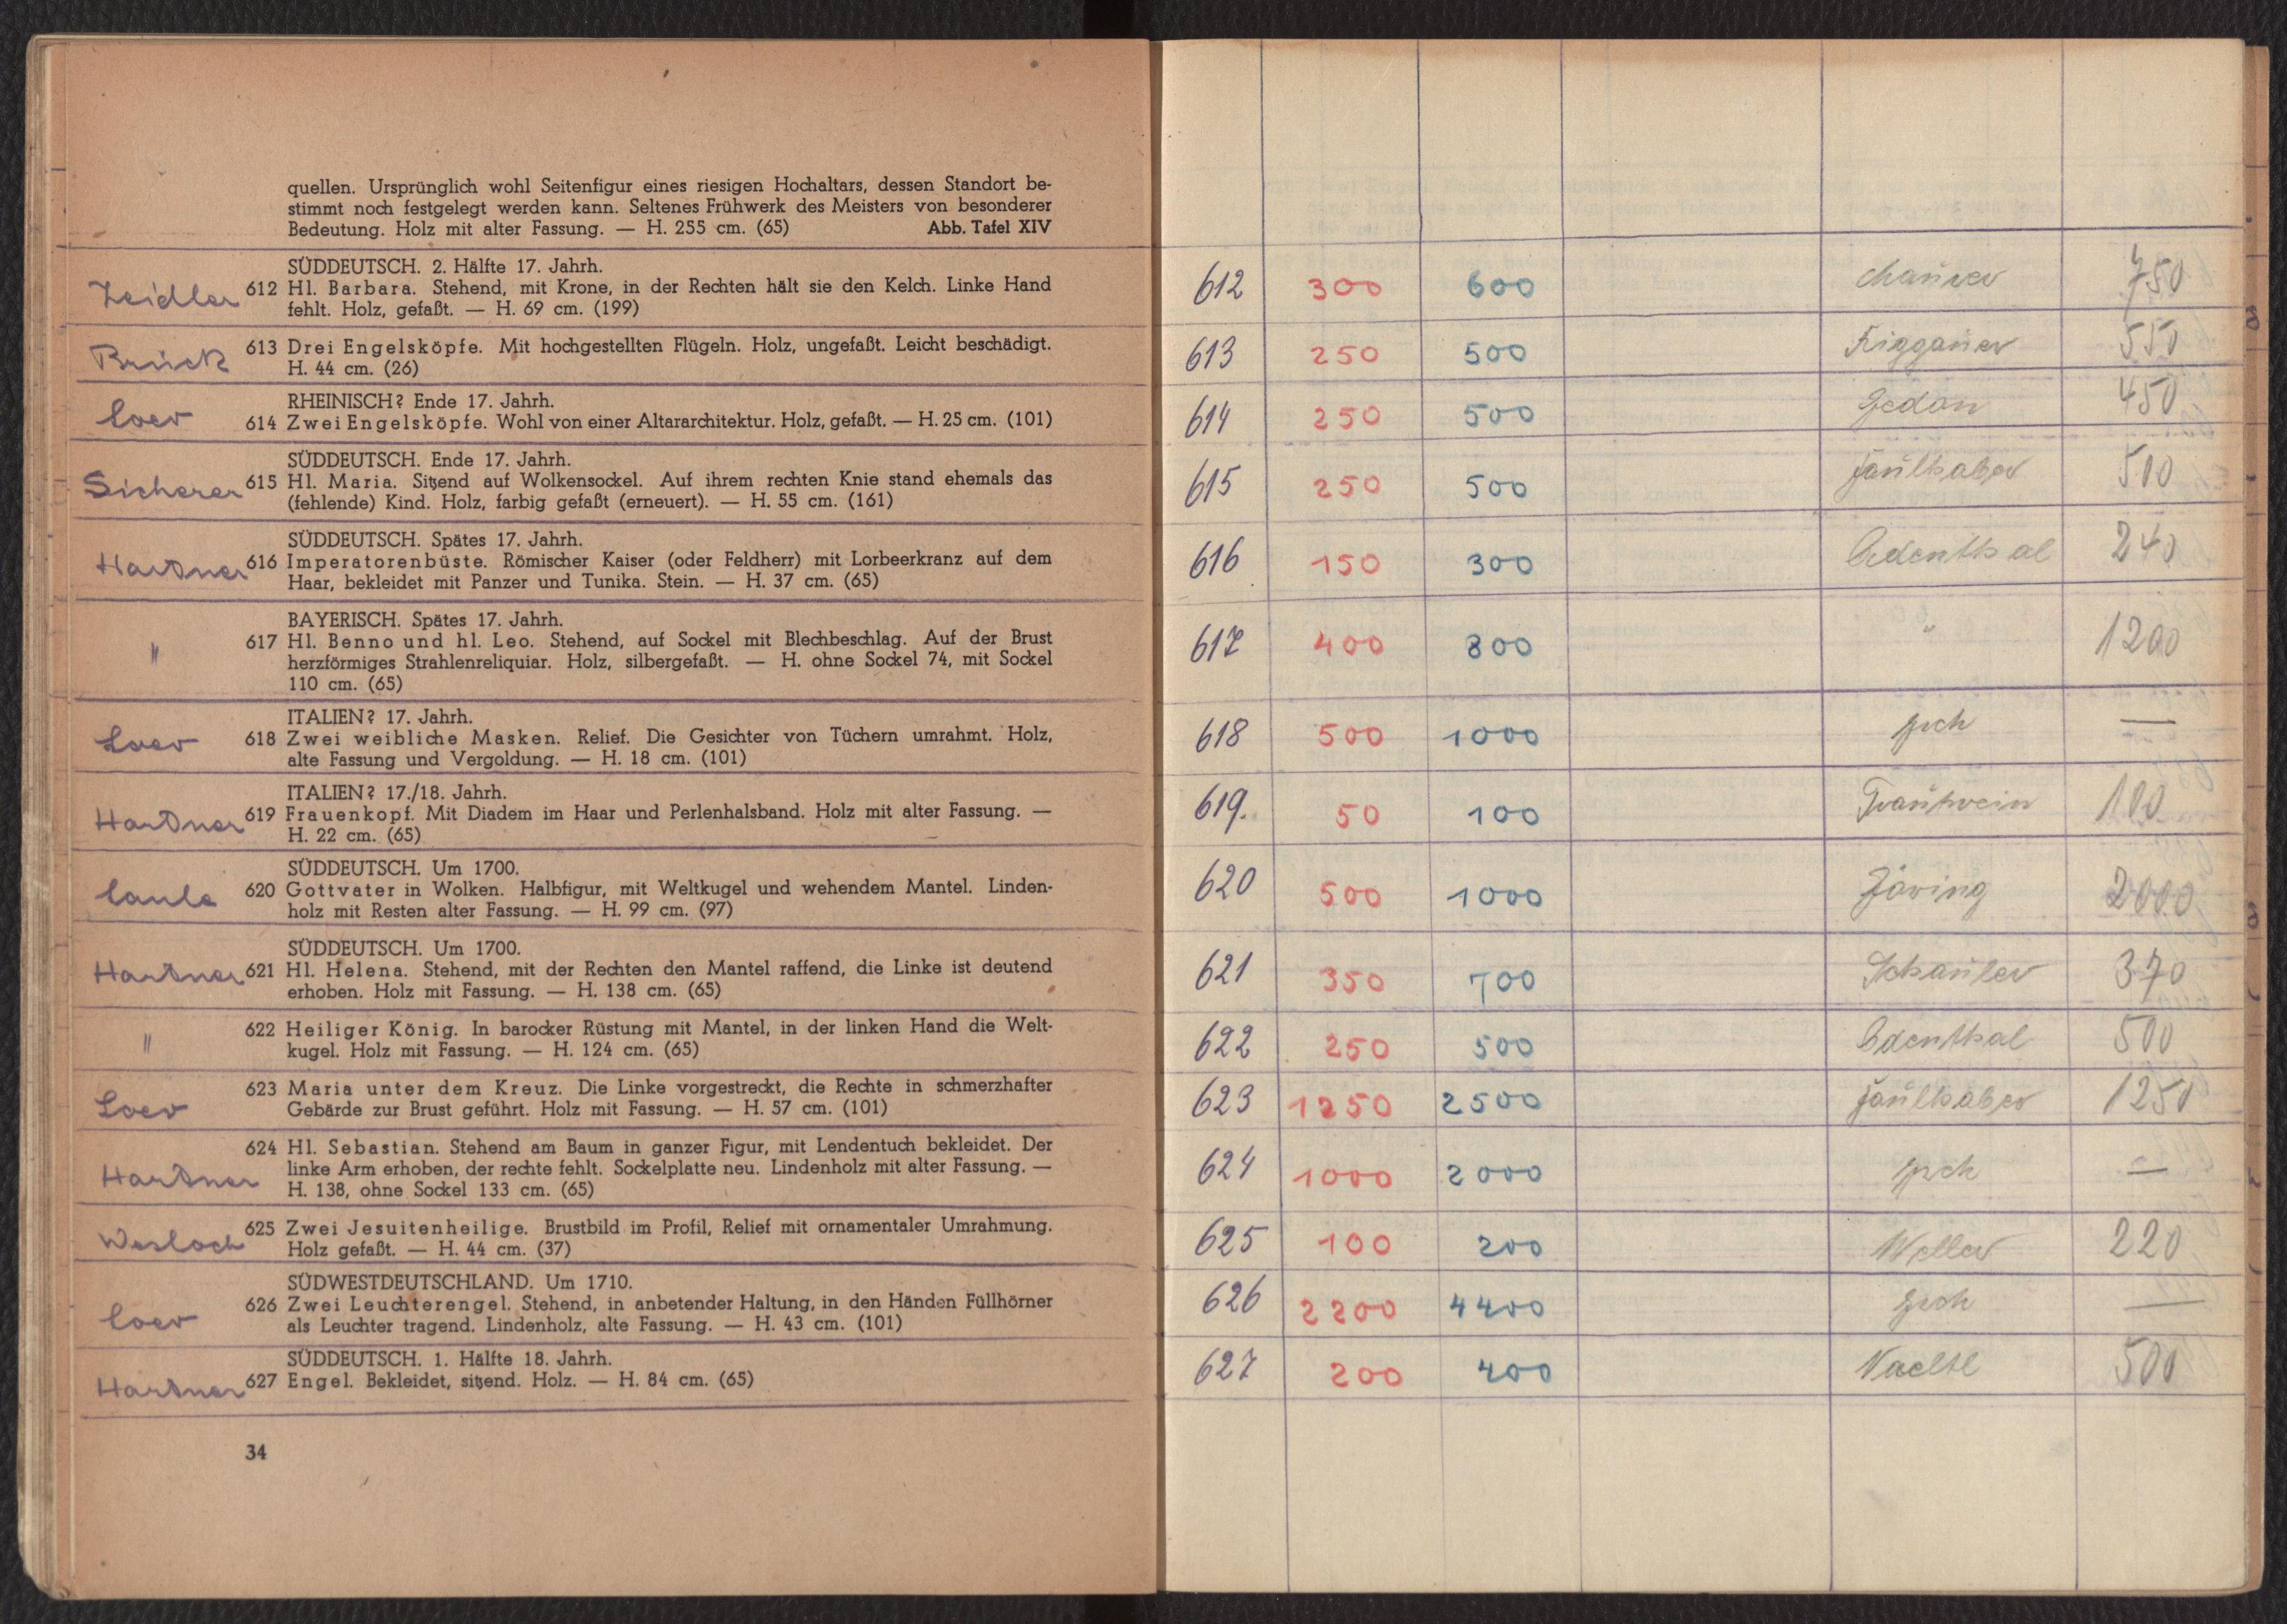 quellen. Ursprünglich wohl Seitenfigur eines riesigen Hochaltars, dessen Standort be-
stimmt noch festgelegt werden kann. Seltenes Frühwerk des Meisters von besonderer
Bedeutung. Holz mit alter Fassung. — H. 255 cm. (65) Abb. Tafel XIV
SÜDDEUTSCH. 2. Hälfte 17. Jahrh.
Zeidler 612 Hl. Barbara. Stehend, mit Krone, in der Rechten hält sie den Kelch. Linke Hand
fehlt. Holz, gefaßt. — H. 69 cm. (199)
Brück 613 Drei Engelsköpfe. Mit hochgestellten Flügeln. Holz, ungefaßt. Leicht beschädigt.
H. 44 cm. (26)
RHEINISCH? Ende 17. Jahrh.
Loev 614 Zwei Engelsköpfe. Wohl von einer Altararchitektur. Holz, gefaßt. — H. 25 cm. (101)
SÜDDEUTSCH. Ende 17. Jahrh.
Sicherer 615 Hl. Maria. Sitzend auf Wolkensockel. Auf ihrem rechten Knie stand ehemals das
(fehlende) Kind. Holz, farbig gefaßt (erneuert). — H. 55 cm. (161)
SÜDDEUTSCH. Spätes 17. Jahrh.
Hartner 616 Imperatorenbüste. Römischer Kaiser (oder Feldherr) mit Lorbeerkranz auf dem
Haar, bekleidet mit Panzer und Tunika. Stein. — H. 37 cm. (65)
BAYERISCH. Spätes 17. Jahrh.
" 617 Hl. Benno und hl. Leo. Stehend, auf Sockel mit Blechbeschlag. Auf der Brust
herzförmiges Strahlenreliquiar. Holz, silbergefaßt. — H. ohne Sockel 74, mit Sockel
110 cm. (65)
ITALIEN? 17. Jahrh.
Loev 618 Zwei weibliche Masken. Relief. Die Gesichter von Tüchern umrahmt. Holz,
alte Fassung und Vergoldung. — H. 18 cm. (101)
ITALIEN? 17./18. Jahrh.
Hartner 619 Frauenkopf. Mit Diadem im Haar und Perlenhalsband. Holz mit alter Fassung. —
H. 22 cm. (65)
SÜDDEUTSCH. Um 1700.
620 Gottvater in Wolken. Halbfigur, mit Weltkugel und wehendem Mantel. Linden-
holz mit Resten alter Fassung. — H. 99 cm. (97)
SÜDDEUTSCH. Um 1700.
Hartner 621 Hl. Helena. Stehend, mit der Rechten den Mantel raffend, die Linke ist deutend
erhoben. Holz mit Fassung. — H. 138 cm. (65)
" 622 Heiliger König. In barocker Rüstung mit Mantel, in der linken Hand die Welt-
kugel. Holz mit Fassung. — H. 124 cm. (65)
Loev 623 Maria unter dem Kreuz. Die Linke vorgestreckt, die Rechte in schmerzhafter
Gebärde zur Brust geführt. Holz mit Fassung. — H. 57 cm. (101)
624 Hl. Sebastian. Stehend am Baum in ganzer Figur, mit Lendentuch bekleidet. Der
Hartner linke Arm erhoben, der rechte fehlt. Sockelplatte neu. Lindenholz mit alter Fassung. —
H. 138, ohne Sockel 133 cm. (65)
625 Zwei Jesuitenheilige. Brustbild im Profil, Relief mit ornamentaler Umrahmung.
Holz gefaßt. — H. 44 cm. (37)
SÜDWESTDEUTSCHLAND. Um 1710.
Loev 626 Zwei Leuchterengel. Stehend, in anbetender Haltung, in den Händen Füllhörner
als Leuchter tragend. Lindenholz, alte Fassung. — H. 43 cm. (101)
SÜDDEUTSCH. 1. Hälfte 18. Jahrh.
Hartner 627 Engel. Bekleidet, sitzend. Holz. — H. 84 cm. (65)
34
612 300 600 750
613 250 500 550
614 250 500 Gedon 450
615 250 500 Faulhaber 500
616 150 300 Odenthal 240
617 400 800 " 1200
618 500 1000 —
619. 50 100 Trautwein 100
620 500 1000 2000
621 350 700 370
622 250 500 Odenthal 500
623 1250 2500 Faulhaber 1250
624 1000 2000 —
625 100 200 Weller 220
626 2200 4400 —
627 200 400 500